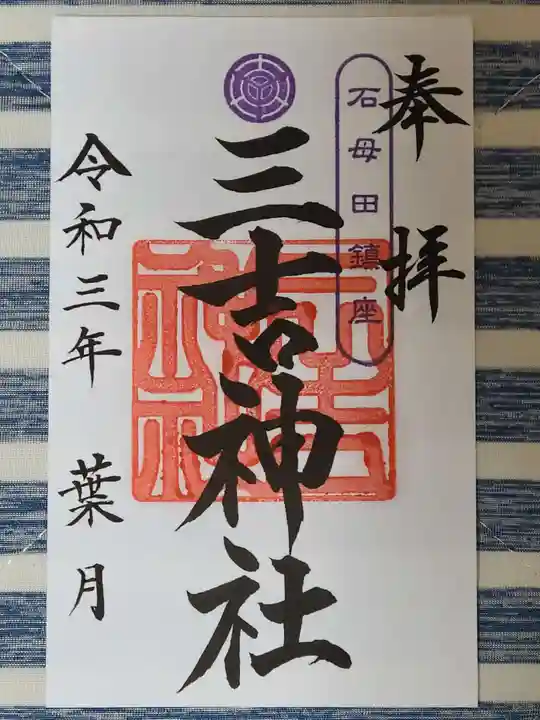 奉拝
石母田鎮座
三吉神社
令和三年 葉月